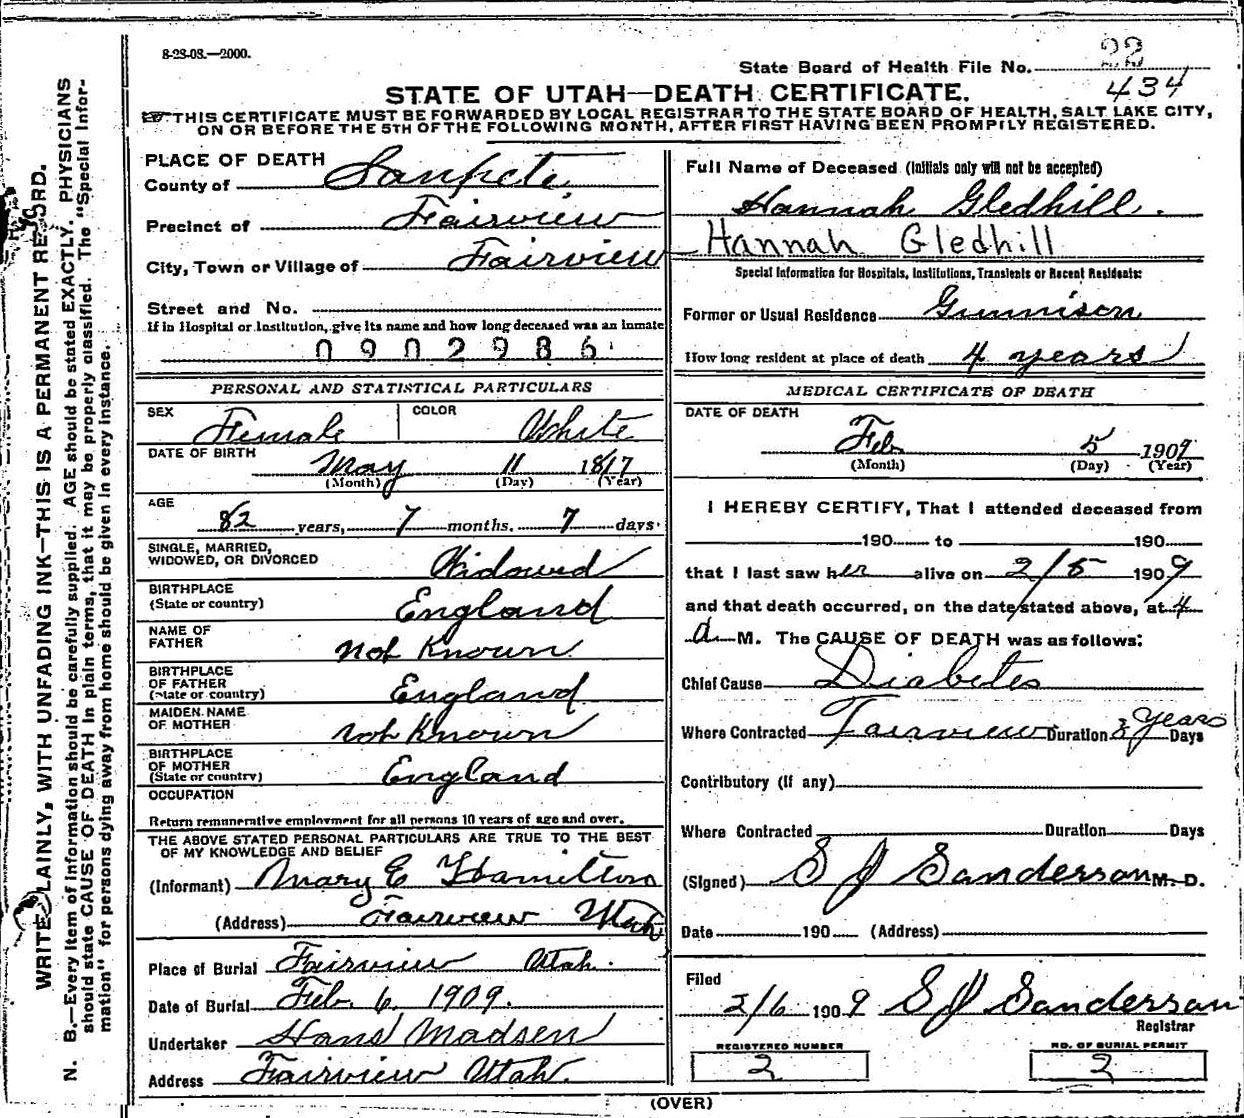 8-28-08.—2000.
State Board of Health File No. 22
434
STATE OF UTAH—DEATH CERTIFICATE.
THIS CERTIFICATE MUST BE FORWARDED BY LOCAL REGISTRAR TO THE STATE BOARD OF HEALTH, SALT LAKE CITY,
ON OR BEFORE THE 5TH OF THE FOLLOWING MONTH, AFTER FIRST HAVING BEEN PROMPTLY REGISTERED.
WRITE PLAINLY, WITH UNFADING INK—THIS IS A PERMANENT RECORD.
N. B.—Every item of information should be carefully supplied. AGE should be stated EXACTLY. PHYSICIANS
should state CAUSE OF DEATH in plain terms, that it may be properly classified. The "Special Infor-
mation" for persons dying away from home should be given in every instance.
PLACE OF DEATH
County of Sanpete
Precinct of Fairview
City, Town or Village of Fairview
Street and No.
If in Hospital or Institution, give its name and how long deceased was an inmate
0902986
PERSONAL AND STATISTICAL PARTICULARS
SEX Female COLOR White
DATE OF BIRTH
May 11 1817
(Month) (Day) (Year)
AGE
82 years, 7 months. 7 days.
SINGLE, MARRIED,
WIDOWED, OR DIVORCED Widowed
BIRTHPLACE
(State or country) England
NAME OF
FATHER not Known
BIRTHPLACE
OF FATHER
(State or country) England
MAIDEN NAME
OF MOTHER not Known
BIRTHPLACE
OF MOTHER
(State or country) England
OCCUPATION
Return remunerative employment for all persons 10 years of age and over.
THE ABOVE STATED PERSONAL PARTICULARS ARE TRUE TO THE BEST
OF MY KNOWLEDGE AND BELIEF
(Informant) Mary E Hamilton
(Address) Fairview Utah
Place of Burial Fairview Utah.
Date of Burial Feb 6 1909.
Undertaker Hans Madsen
Address Fairview Utah.
Full Name of Deceased (Initials only will not be accepted)
Hannah Gledhill.
Hannah Gledhill
Special Information for Hospitals, Institutions, Transients or Recent Residents:
Former or Usual Residence Gunnison
How long resident at place of death 4 years
MEDICAL CERTIFICATE OF DEATH
DATE OF DEATH
Feb 5 1909
(Month) (Day) (Year)
I HEREBY CERTIFY, That I attended deceased from
190 to 190
that I last saw her alive on 2/5 1909
and that death occurred, on the date stated above, at 4
a M. The CAUSE OF DEATH was as follows:
Chief Cause Diabetes
Where Contracted Fairview Duration 3 years Days
Contributory (if any)
Where Contracted Duration Days
(Signed) S J Sanderson M. D.
Date 190 (Address)
Filed
2/6 1909 S J Sanderson
Registrar
REGISTERED NUMBER
2
NO. OF BURIAL PERMIT
2
(OVER)